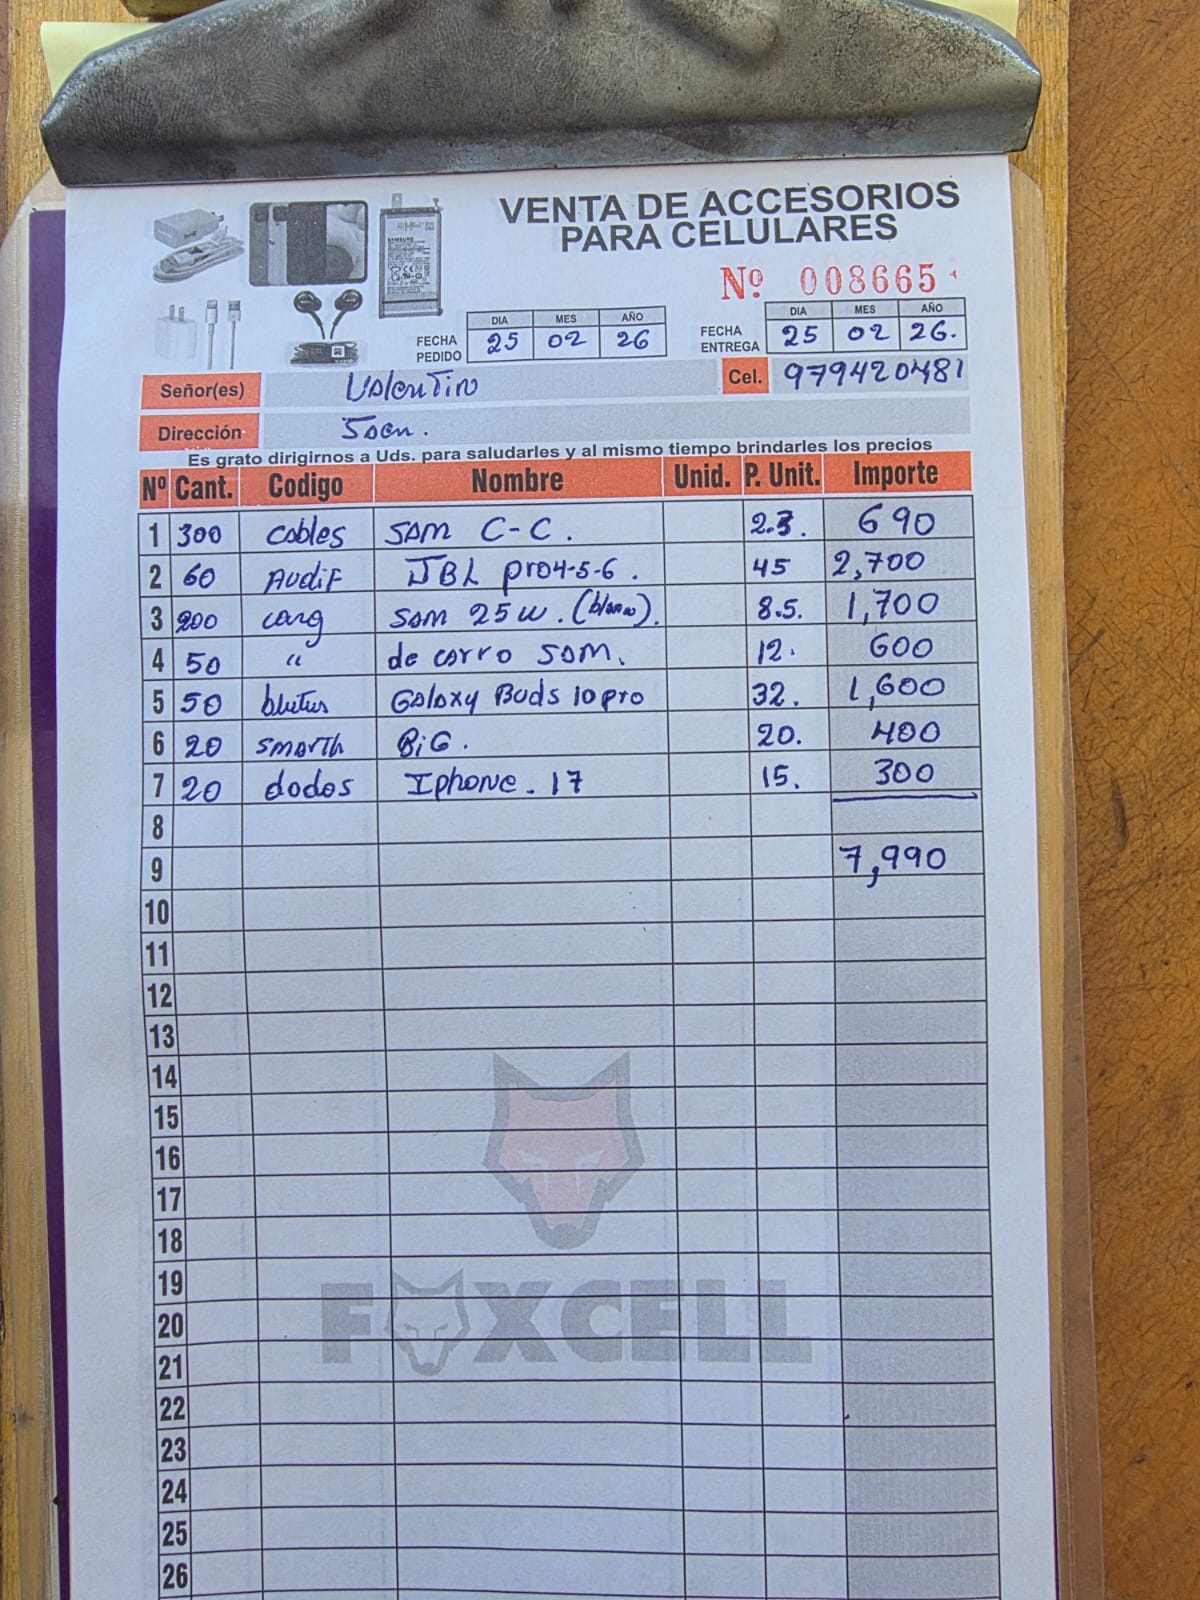 VENTA DE ACCESORIOS
PARA CELULARES
Nº 008665
SAMSUNG
FECHA PEDIDO DIA MES AÑO 25 02 26
FECHA ENTREGA DIA MES AÑO 25 02 26.
Señor(es) Valentin Cel. 979420481
Dirección
Es grato dirigirnos a Uds. para saludarles y al mismo tiempo brindarles los precios
Nº Cant. Codigo Nombre Unid. P. Unit. Importe
1 300 cables SAM C-C. 2.3. 690
2 60 Audif JBL pro4-5-6. 45 2,700
3 200 carg SAM 25w. (blanco). 8.5. 1,700
4 50 " de carro SAM. 12. 600
5 50 blutus Galaxy Buds 10pro 32. 1,600
6 20 smarth BiG. 20. 400
7 20 dados Iphone. 17 15. 300
8
9 7,990
10
11
12
13
14
15
16
17
18
19
20
21
22
23
24
25
26
FOXCELL